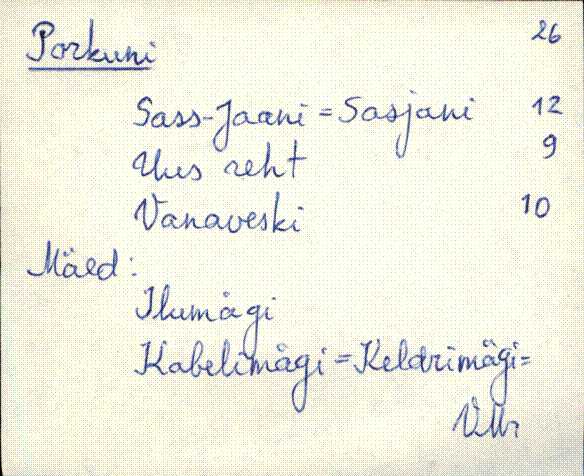 Porkuni 26
Sass-Jaani = Sasjani 12
Uus reht 9
Vanaveski 10
Mäed:
Ilumägi
Kabelimägi = Keldrimägi =